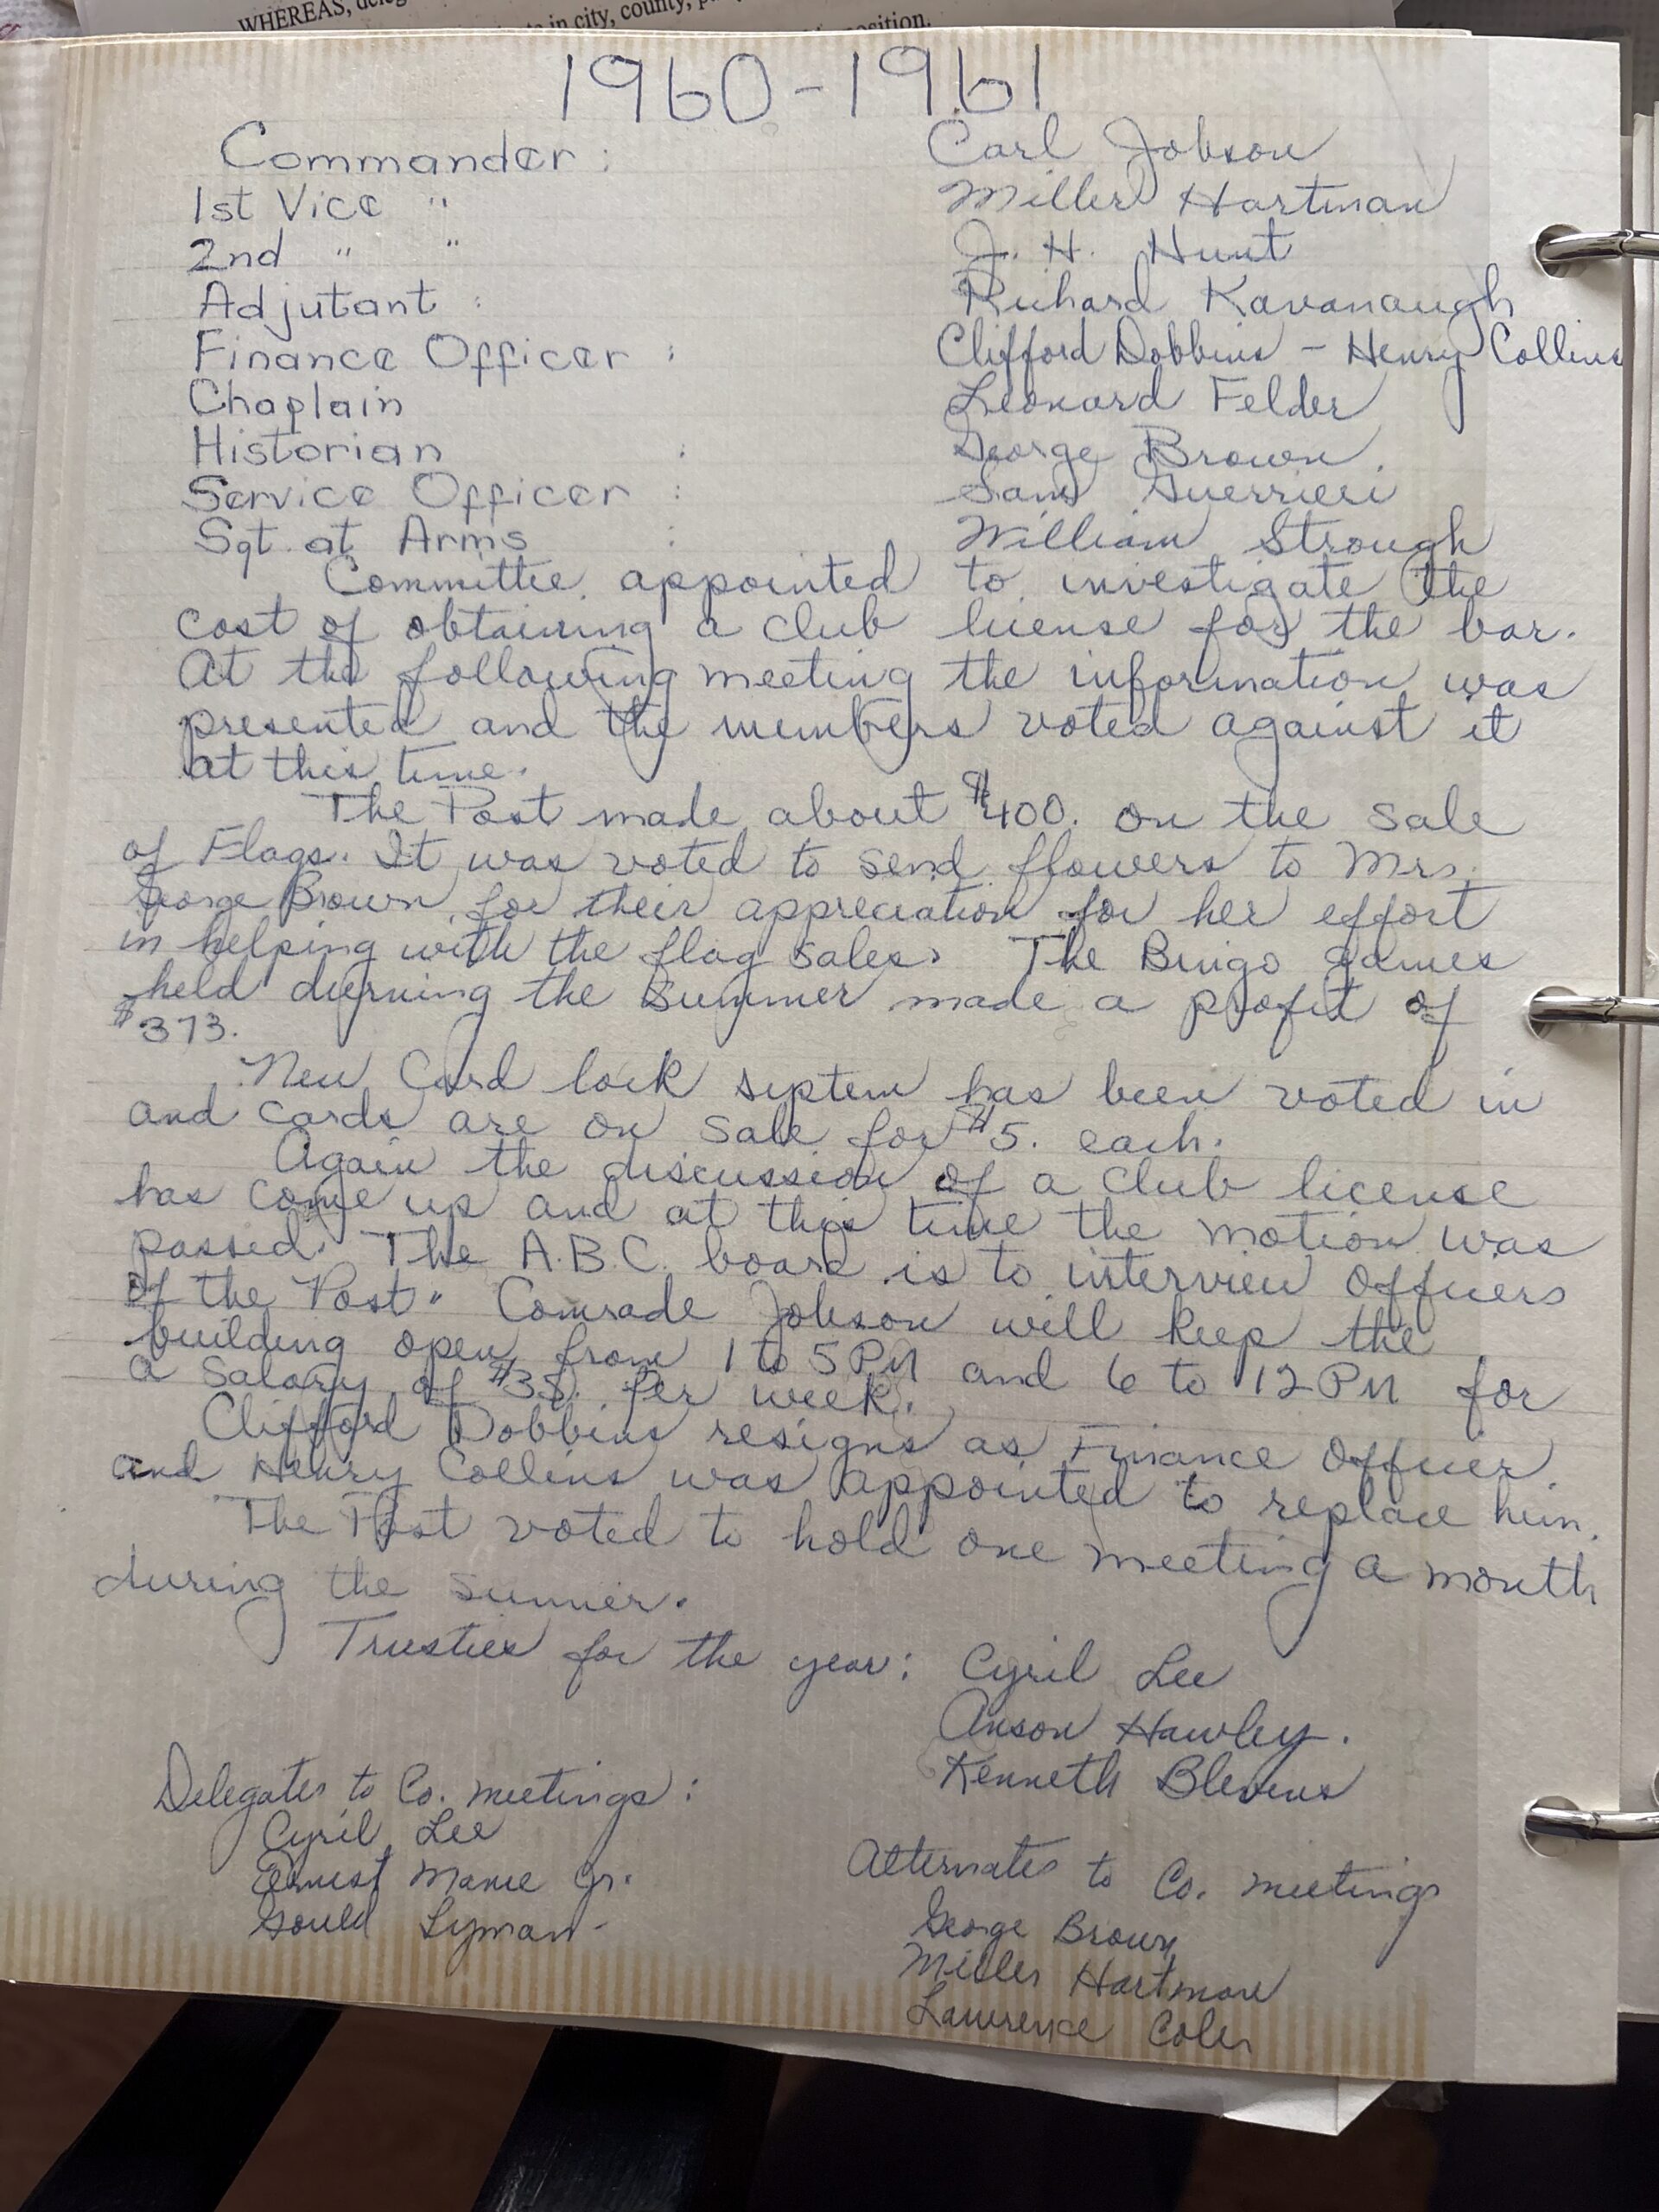 WHEREAS,
in city, county,
position.
1960-1961
Commander : Carl Jobson
1st Vice " Miller Hartman
2nd " " J. H. Hunt
Adjutant : Richard Kavanaugh
Finance Officer : Clifford Dobbins - Henry Collins
Chaplain Leonard Felder
Historian : George Brown.
Service Officer : Sam Guerrieri
Sgt. at Arms : William Strough
Committee appointed to investigate the
cost of obtaining a club license for the bar.
At the following meeting the information was
presented and the members voted against it
at this time.
The Post made about $400. on the sale
of Flags. It was voted to send flowers to Mrs.
George Brown for their appreciation for her effort
in helping with the flag sales. The Bingo games
held durning the summer made a profit of
$373.
New Card lock system has been voted in
and cards are on sale for $5. each.
Again the discussion of a club license
has come up and at this time the motion was
passed. The A.B.C. board is to interview officers
of the Post. Comrade Jobson will keep the
building open from 1 to 5 PM and 6 to 12 PM for
a salary of per week.
Clifford Dobbins resigns as Finance Officer
and Henry Collins was appointed to replace him.
The Post voted to hold one meeting a month
during the summer.
Trusties for the year: Cyril Lee
Anson Hawley.
Kenneth Blevins
Delegates to Co. meetings:
Cyril Lee
Ernest Jr.
Gould Lyman
Alternates to Co. meetings
George Brown
Miller Hartman
Lawrence Coles